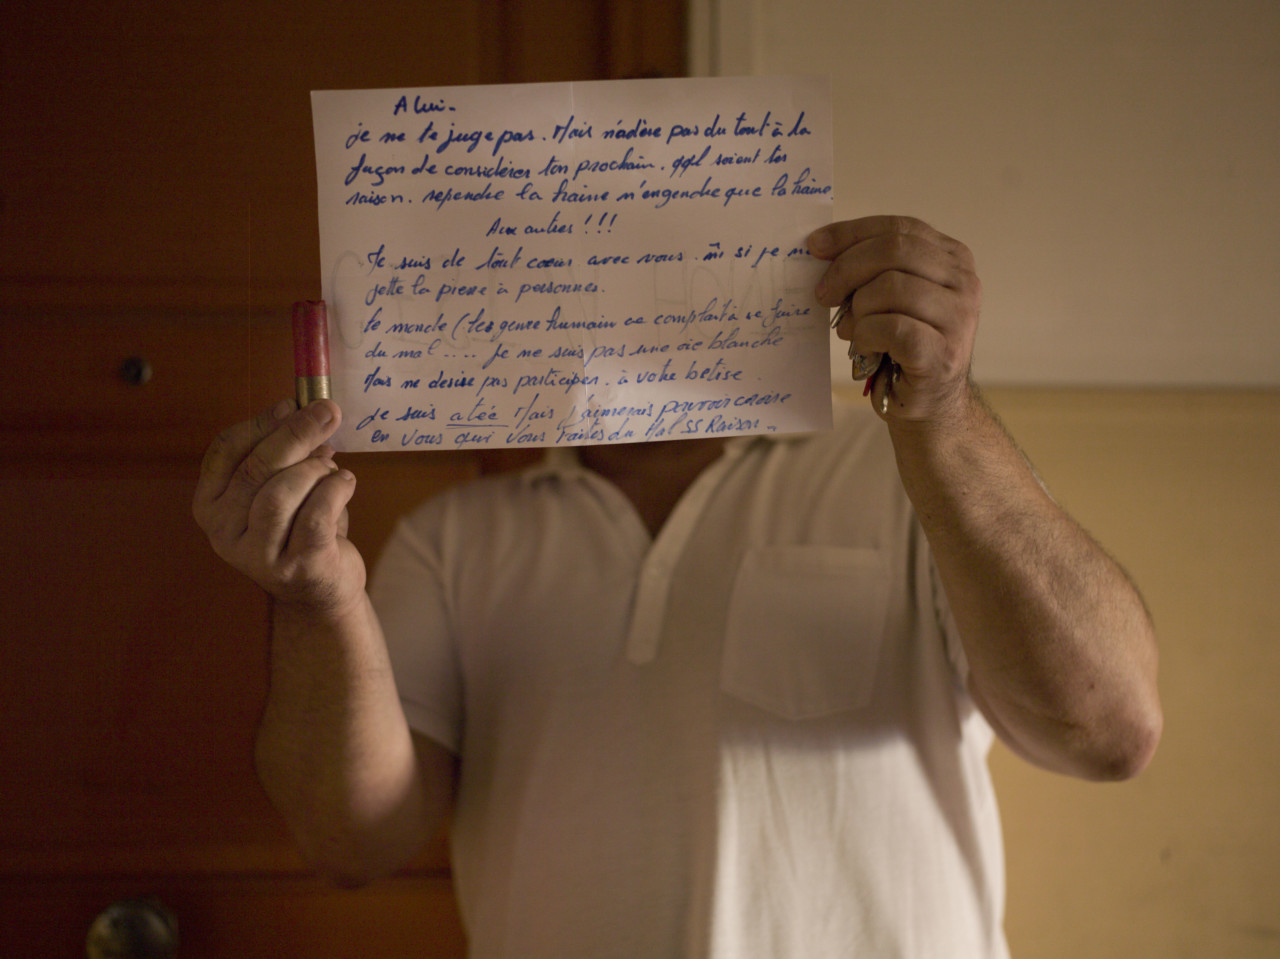 A lui.
je ne te juge pas. Mais n'adère pas du tout à la
façon de considérer ton prochain. qql soient tes
raison. rependre la haine n'engendre que la haine.
Aux autres !!!
Je suis de tout coeur avec vous. m̂ si je ne
jette la pierre à personnes.
le monde (les genre humain se complait à se faire
du mal .... je ne suis pas une oie blanche
Mais ne desire pas participer. à votre betise.
je suis atée Mais j'aimerais pouvoir croire
en vous qui vous faites du Mal SS Raison..